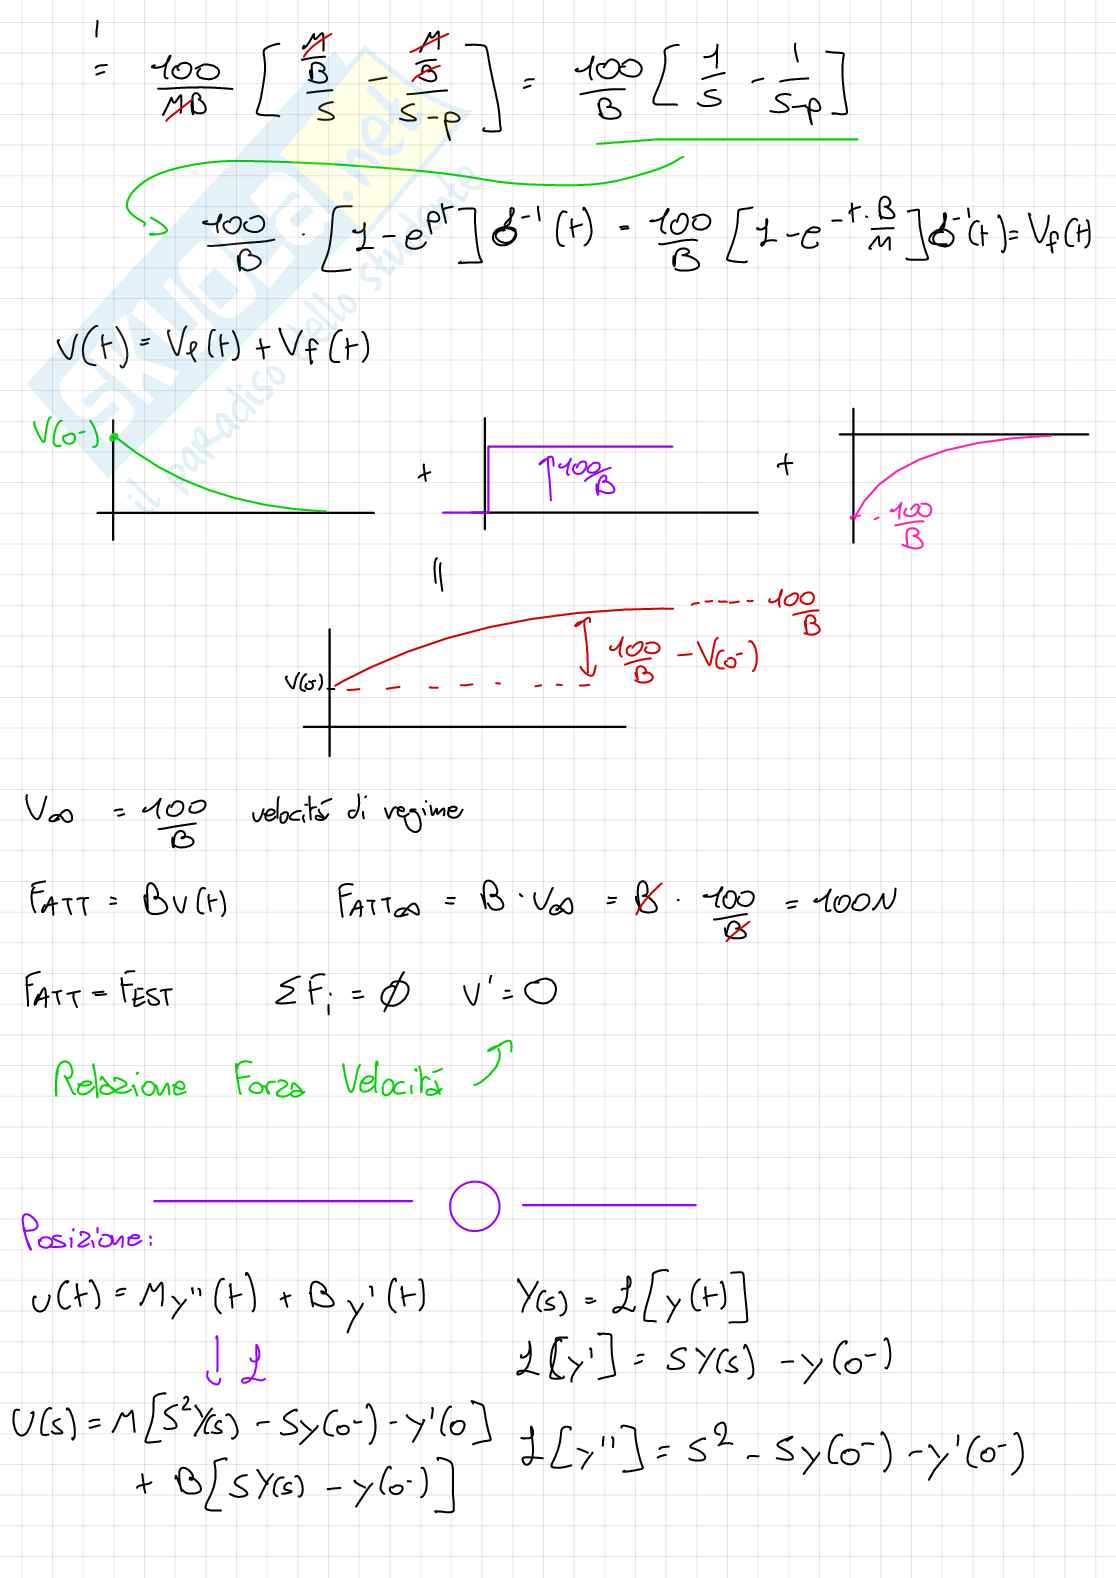 = 100/MB [ M/B/S - M/B/S-p ] = 100/B [ 1/S - 1/S-p ]
100/B · [1 - e^pt] δ^-1 (t) = 100/B [1 - e^-t·B/M] δ^-1(t) = Vf(t)
V(t) = Vl(t) + Vf(t)
V(0-) + 100/B + - 100/B
||
100/B
100/B - V(0-)
V(0-)
V∞ = 100/B velocitá di regime
FATT = BV(t) FATT∞ = B · V∞ = B · 100/B = 100N
FATT = FEST ΣFi = ∅ V' = 0
Relazione Forza Velocitá
Posizione:
U(t) = My''(t) + By'(t) Y(s) = ℒ[y(t)]
↓ ℒ ℒ[y'] = SY(s) - y(0-)
U(s) = M[S²Y(s) - Sy(0-) - y'(0] ℒ[y''] = S² - Sy(0-) - y'(0-)
+ B[SY(s) - y(0-)]
SKUOLA.net
il paradiso dello studente